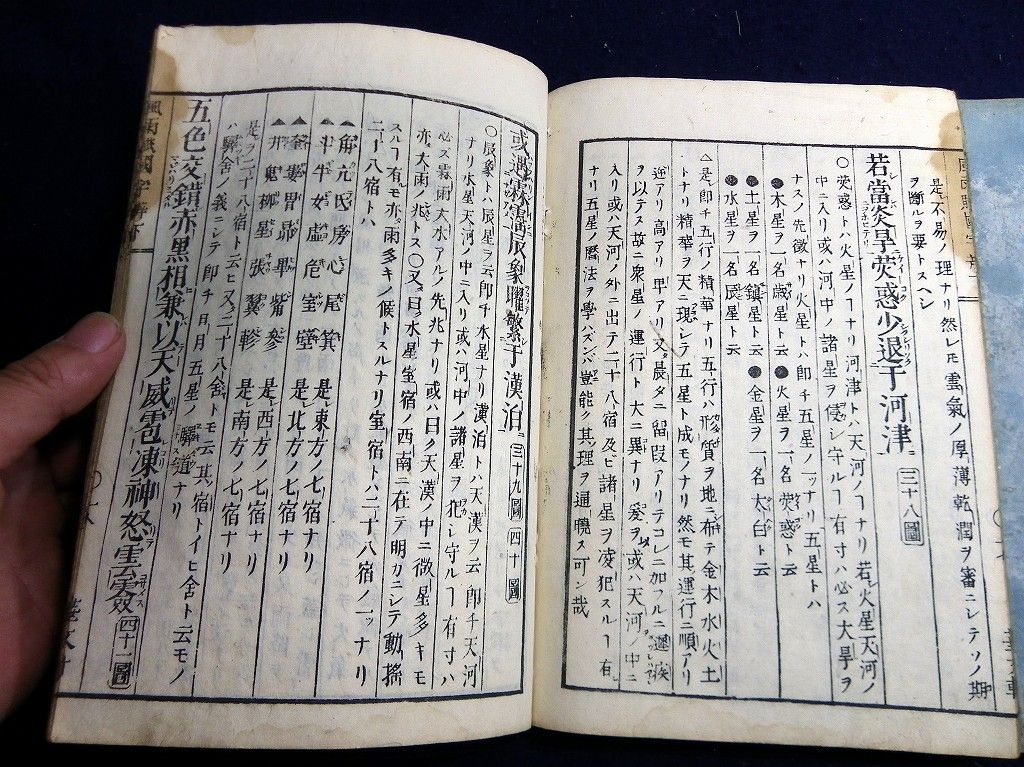 是不易ノ理ナリ然レモ雲氣ノ厚薄乾潤ヲ審ニシテソノ期
ヲ斷ルヲ要トスヘシ
若當炎旱熒惑少退于河津 三十八圖
○熒惑トハ火星ノ𬼀ナリ河津トハ天河ノ𬼀ナリ若シ火星天河ノ
中ニ入リ或ハ河中ノ諸星ヲ侵シ守ル𬼀有寸ハ必ス大旱ヲ
ナスノ先徴ナリ火星トハ即チ五星ノ一ッナリ五星トハ
●木星ヲ一名歳星ト云 ●火星ヲ一名熒惑ト云
●土星ヲ一名鎮星ト云 ●金星ヲ一名太白ト云
●水星ヲ一名辰星ト云
△是レ即チ五行ノ精華ナリ五行ハ形質ヲ地ニ布テ金木水火土
トナリ精華ヲ天ニ現シテ五星ト成モノナリ然モ其運行ニ順アリ
逆アリ高アリ卑アリ又晨夕ニ留段アリテコレニ加フルニ遲疾
ヲ以テス故ニ衆星ノ運行ト大ニ異ナリ爰ヲ以或ハ天河ノ中ニ
入リ或ハ天河ノ外ニ出テ二十八宿及ビ諸星ヲ凌犯スル𬼀有
ナリ五星ノ暦法ヲ學ハズンバ豈能ク其理ヲ通曉ス可ン哉
或遇霖霪辰象躍繁于漢泊 三十九圖 四十圖
○辰象トハ辰星ヲ云即チ水星ナリ漢泊トハ天漢ヲ云即チ天河
ナリ水星天河ノ中ニ入リ或ハ河中ノ諸星ヲ犯シ守ル𬼀有寸ハ
必ス霖雨大水アルノ先兆ナリ或ハ曰ク天漢ノ中ニ微星多キモ
亦大雨ノ兆トス○又曰水星室宿ノ西南ニ在テ明カニシテ動搖
スル𬼀有モ亦雨多キノ候トスルナリ室宿トハ二十八宿ノ一ッナリ
二十八宿トハ
▲角亢氐房心尾箕 是レ東方ノ七宿ナリ
▲斗牛女虚危室壁 是レ北方ノ七宿ナリ
▲奎婁胃昴畢觜參 是レ西方ノ七宿ナリ
▲井鬼柳星張翼軫 是レ南方ノ七宿ナリ
是ヲ二十八宿ト云ヒ又二十八舎トモ云其宿トイヒ舎ト云モノ
ハ驛舎ノ義ニシテ即チ日月五星ノ驛道ナリ
五色交錯赤黒相兼以天威雹凍神怒雲 四十一圖